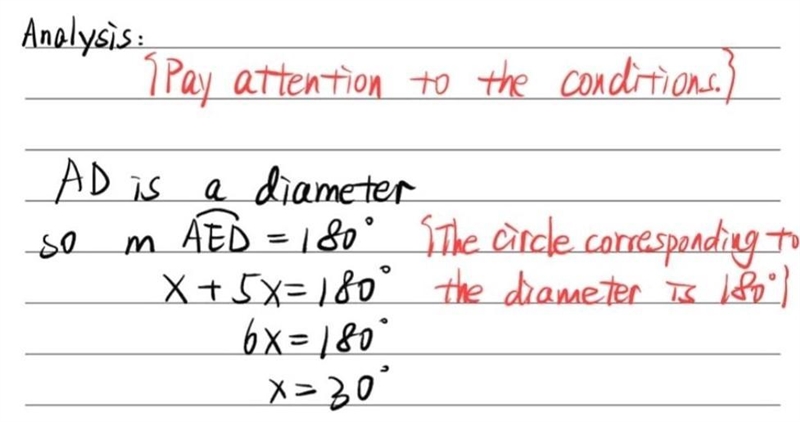 Analysis:
{Pay attention to the conditions.}
AD is a diameter
so m A͡ED = 180° {The circle corresponding to
x + 5x = 180° the diameter is 180°}
6x = 180°
x = 30°